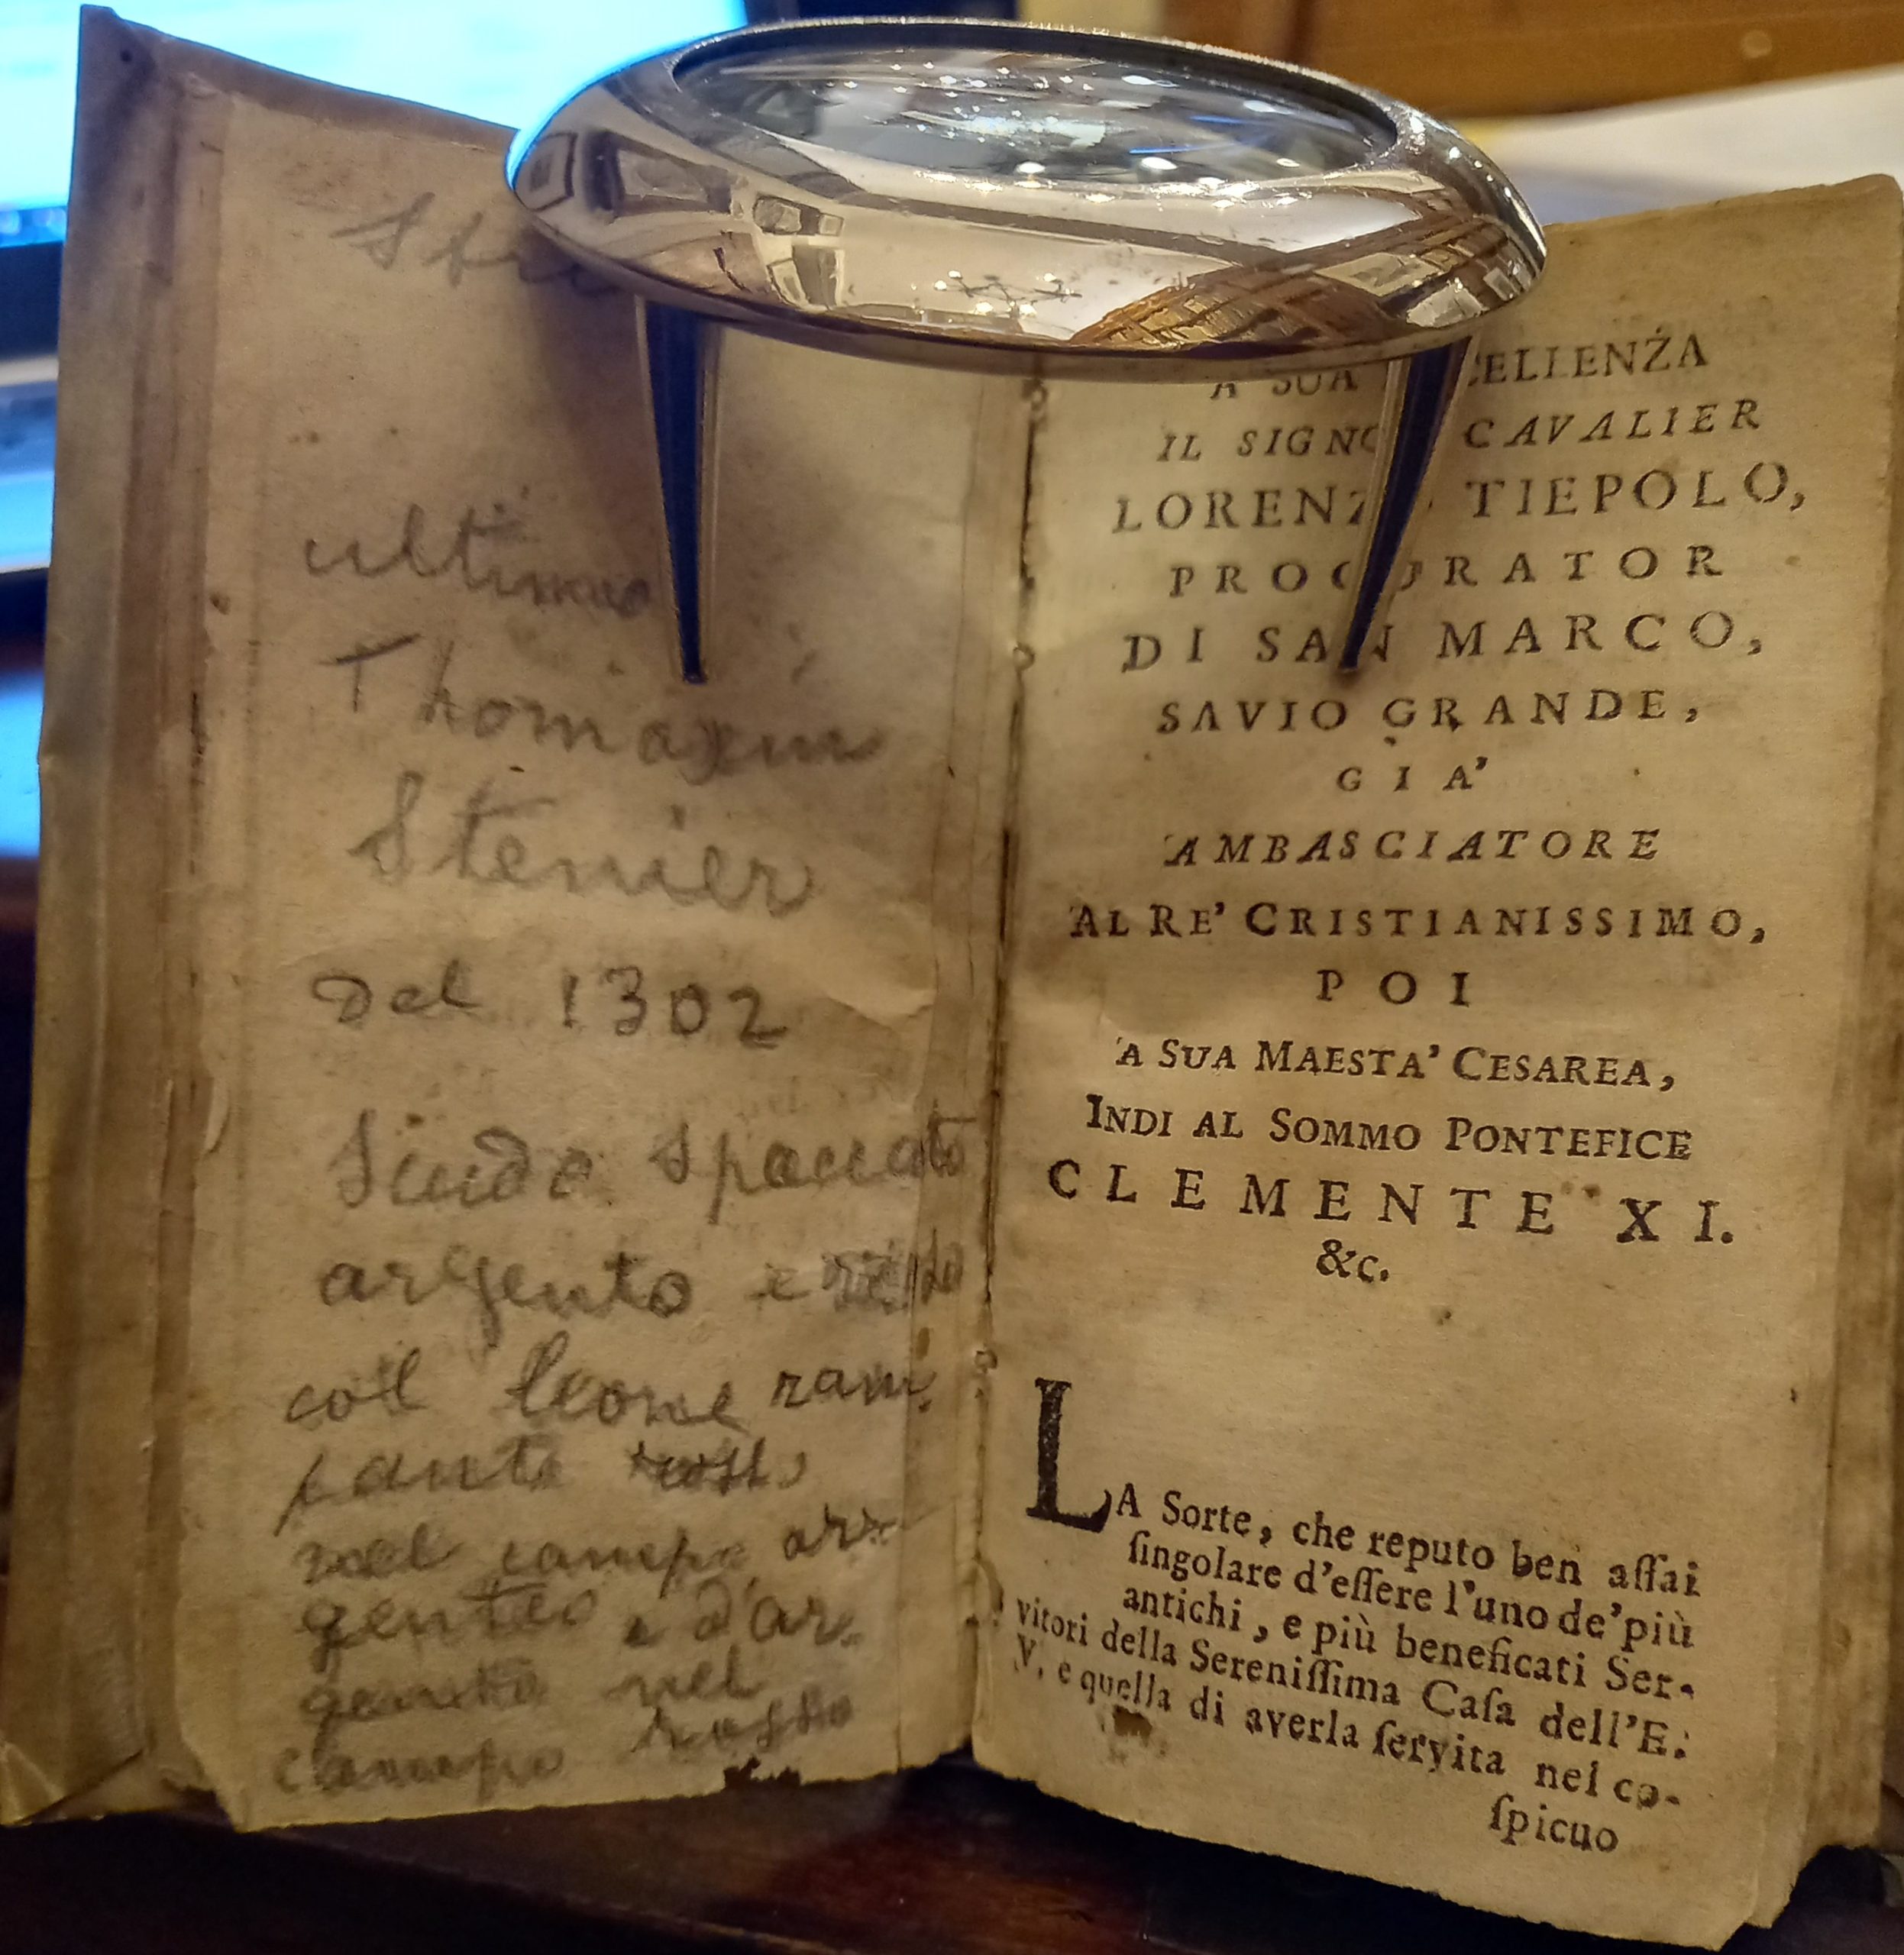 ultimo
Thomaxin
Stenier
del 1302
Scudo spaccato
argento e
coll leone ram-
pante rosso
nel campo arx
genteo e d'ar-
gento nel
campo rosso
A SUA CELLENZA
IL SIGNO CAVALIER
LORENZ TIEPOLO,
PROCURATOR
DI SAN MARCO,
SAVIO GRANDE,
GIA'
AMBASCIATORE
AL RE' CRISTIANISSIMO,
POI
A SUA MAESTA' CESAREA,
INDI AL SOMMO PONTEFICE
CLEMENTE XI.
&c.
LA Sorte, che reputo ben aſſai
ſingolare d'eſſere l'uno de' più
antichi, e più beneficati Ser-
vitori della Sereniſſima Caſa dell'E.
V. e quella di averla ſervita nel co-
ſpicuo